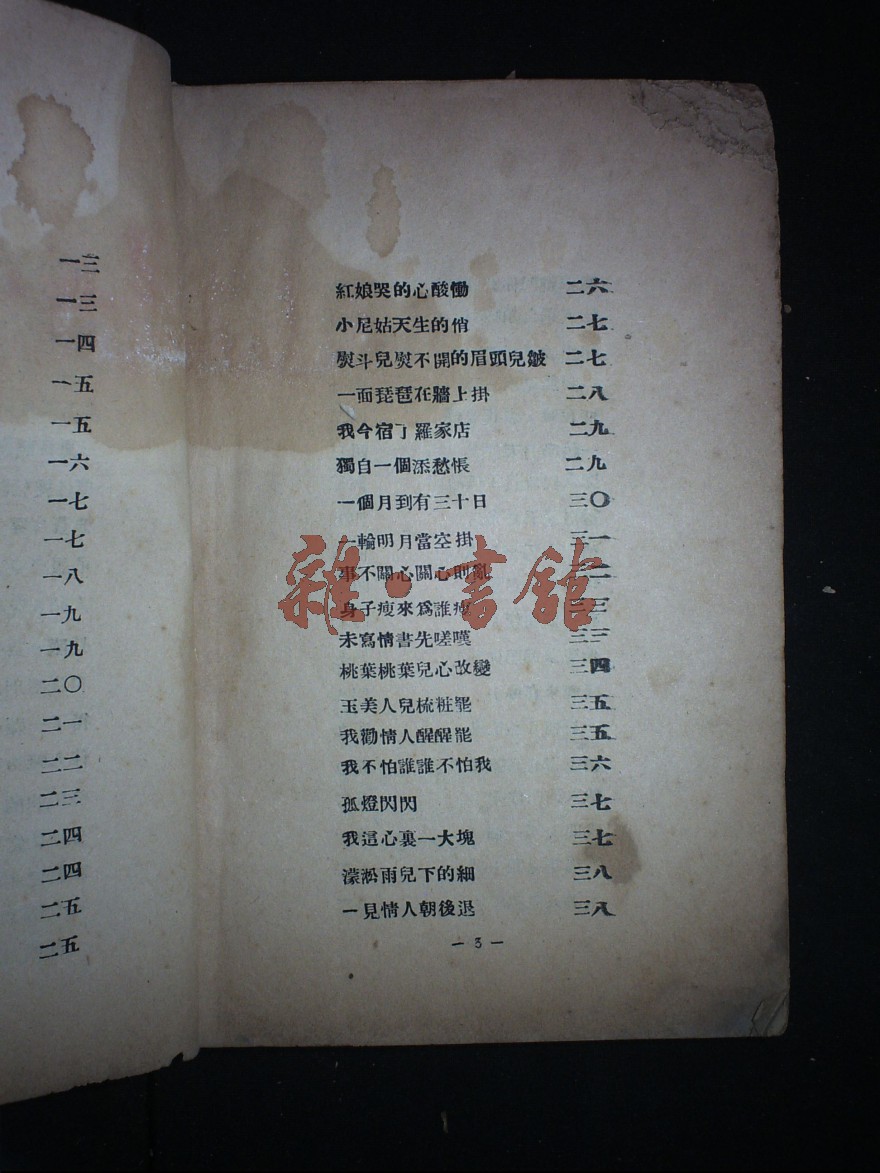 一三
一三
一四
一五
一五
一六
一七
一七
一八
一九
一九
二〇
二一
二二
二三
二四
二四
二五
二五
紅娘哭的心酸慟 二六
小尼姑天生的俏 二七
熨斗兒熨不開的眉頭兒皺 二七
一面琵琶在牆上掛 二八
我今宿了羅家店 二九
獨自一個添愁悵 二九
一個月到有三十日 三〇
一輪明月當空掛 三一
事不關心關心則亂
身子瘦來為誰瘦
未寫情書先嗟嘆 三三
桃葉桃葉兒心改變 三四
玉美人兒梳粧罷 三五
我勸情人醒醒罷 三五
我不怕誰誰不怕我 三六
孤燈閃閃 三七
我這心裏一大塊 三七
濛淞雨兒下的細 三八
一見情人朝後退 三八
— 3 —
雜·書館